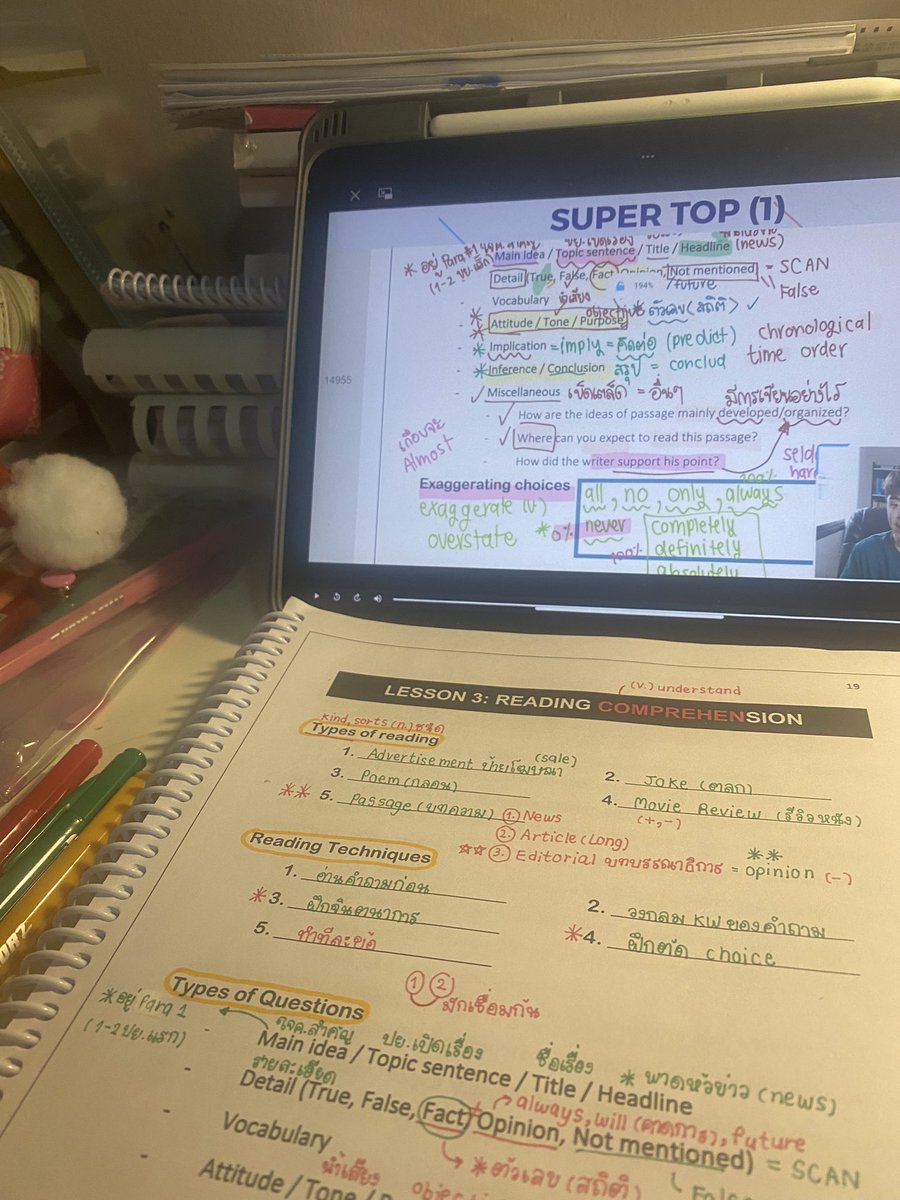 SUPER TOP (1)
* อยู่ Para #1 ใจค.สำคัญ ปย.เปิดเรื่อง
(1-2 ปย.แรก)
Main idea / Topic sentence / Title / Headline (news)
Detail (True, False, Fact Opinion, Not mentioned) = SCAN
194% /future False
Vocabulary น้ำเสียง
objective * ตัวเลข (สถิติ) ✓
Attitude / Tone / Purpose
* Implication = imply = คิดต่อ (predict) chronological
* Inference / Conclusion สรุป = conclud time order
14955
✓ Miscellaneous เบ็ดเตล็ด = อื่นๆ มีการเขียนอย่างไร
✓ How are the ideas of passage mainly developed/organized?
เกือบจะ
Almost
✓ Where can you expect to read this passage?
How did the writer support his point?
Exaggerating choices
all, no, only, always
exaggerate (v)
overstate * 0% never
completely
definitely
100% absolutely
(v.) understand
19
LESSON 3: READING COMPREHENSION
kind, sorts (n.) ชนิด
Types of reading
1. Advertisement ป้ายโฆษณา (sale)
2. Joke (ตลก)
3. Poem (กลอน)
4. Movie Review (รีวิวหนัง)
(+,-)
** 5. Passage (บทความ) 1. News
2. Article (Long)
3. Editorial บทบรรณาธิการ = opinion (-)
Reading Techniques
1. อ่านคำถามก่อน
2. วงกลม KW ของคำถาม
* 3. ฝึกจินตนาการ
* 4. ฝึกตัด choice
5. ทำทีละข้อ
Types of Questions
1 2 มักเชื่อมกัน
* อยู่ Para 1
(1-2 ปย.แรก)
ใจค.สำคัญ ปย.เปิดเรื่อง ชื่อเรื่อง * พาดหัวข่าว (news)
- Main idea / Topic sentence / Title / Headline
รายละเอียด
always, will (คาดการ), future
- Detail (True, False, Fact Opinion, Not mentioned) = SCAN
- Vocabulary
* ตัวเลข (สถิติ)
น้ำเสียง
- Attitude / Tone /